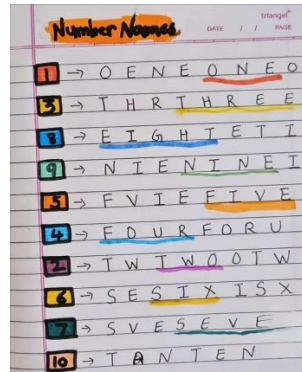 Number Names
triangel
DATE / / PAGE
1 → O E N E O N E O
3 → T H R T H R E E
8 → E I G H T E T I
9 → N I E N I N E I
5 → F V I E F I V E
4 → F O U R F O R U
2 → T W T W O O T W
6 → S E S I X I S X
7 → S V E S E V E
10 → T A N T E N